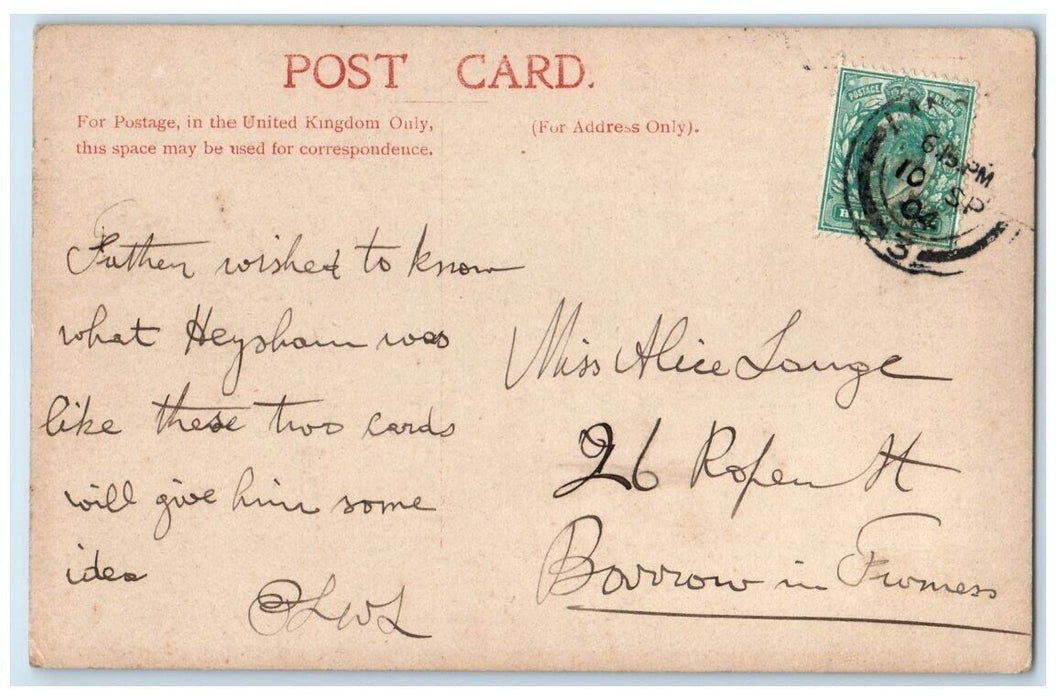 POST CARD.
For Postage, in the United Kingdom Only,
this space may be used for correspondence.
(For Address Only).
POSTAGE
6.15 PM
10 SP
04
3
Father wished to know
what Heysham was
like these two cards
will give him some
idea
Miss Alice Lange
26 Roper St
Barrow in Furness